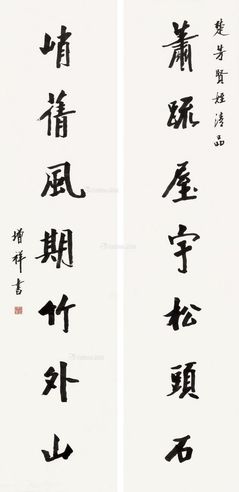 楚芳賢姪清品
蕭疏屋宇松頭石
峭蒨風期竹外山
增祥書